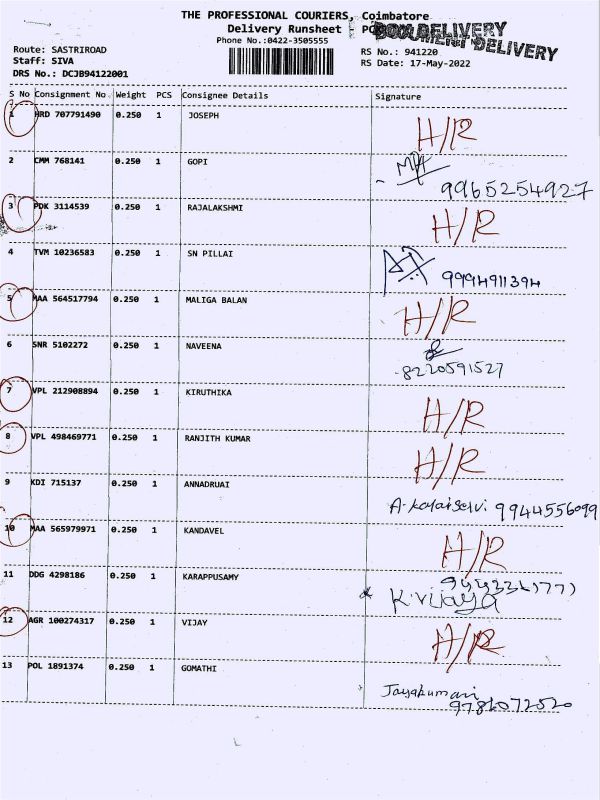 THE PROFESSIONAL COURIERS, Coimbatore
Delivery Runsheet
DOCUMENT DELIVERY
Phone No.:0422-3505555
Route: SASTRIROAD
RS No.: 941220
Staff: SIVA
RS Date: 17-May-2022
DRS No.: DCJB94122001
S No Consignment No. Weight PCS Consignee Details Signature
1 HRD 707791490 0.250 1 JOSEPH H/R
2 CMM 768141 0.250 1 GOPI 9965254927
3 PDK 3114539 0.250 1 RAJALAKSHMI H/R
4 TVM 10236583 0.250 1 SN PILLAI 9994911394
5 MAA 564517794 0.250 1 MALIGA BALAN H/R
6 SNR 5102272 0.250 1 NAVEENA 8220591527
7 VPL 212908894 0.250 1 KIRUTHIKA H/R
8 VPL 498469771 0.250 1 RANJITH KUMAR H/R
9 KDI 715137 0.250 1 ANNADRUAI A. Kalaiselvi 9944556099
10 MAA 565979971 0.250 1 KANDAVEL H/R
11 DDG 4298186 0.250 1 KARAPPUSAMY K. Vijaya
12 AGR 100274317 0.250 1 VIJAY H/R
13 POL 1891374 0.250 1 GOMATHI Jayakumari